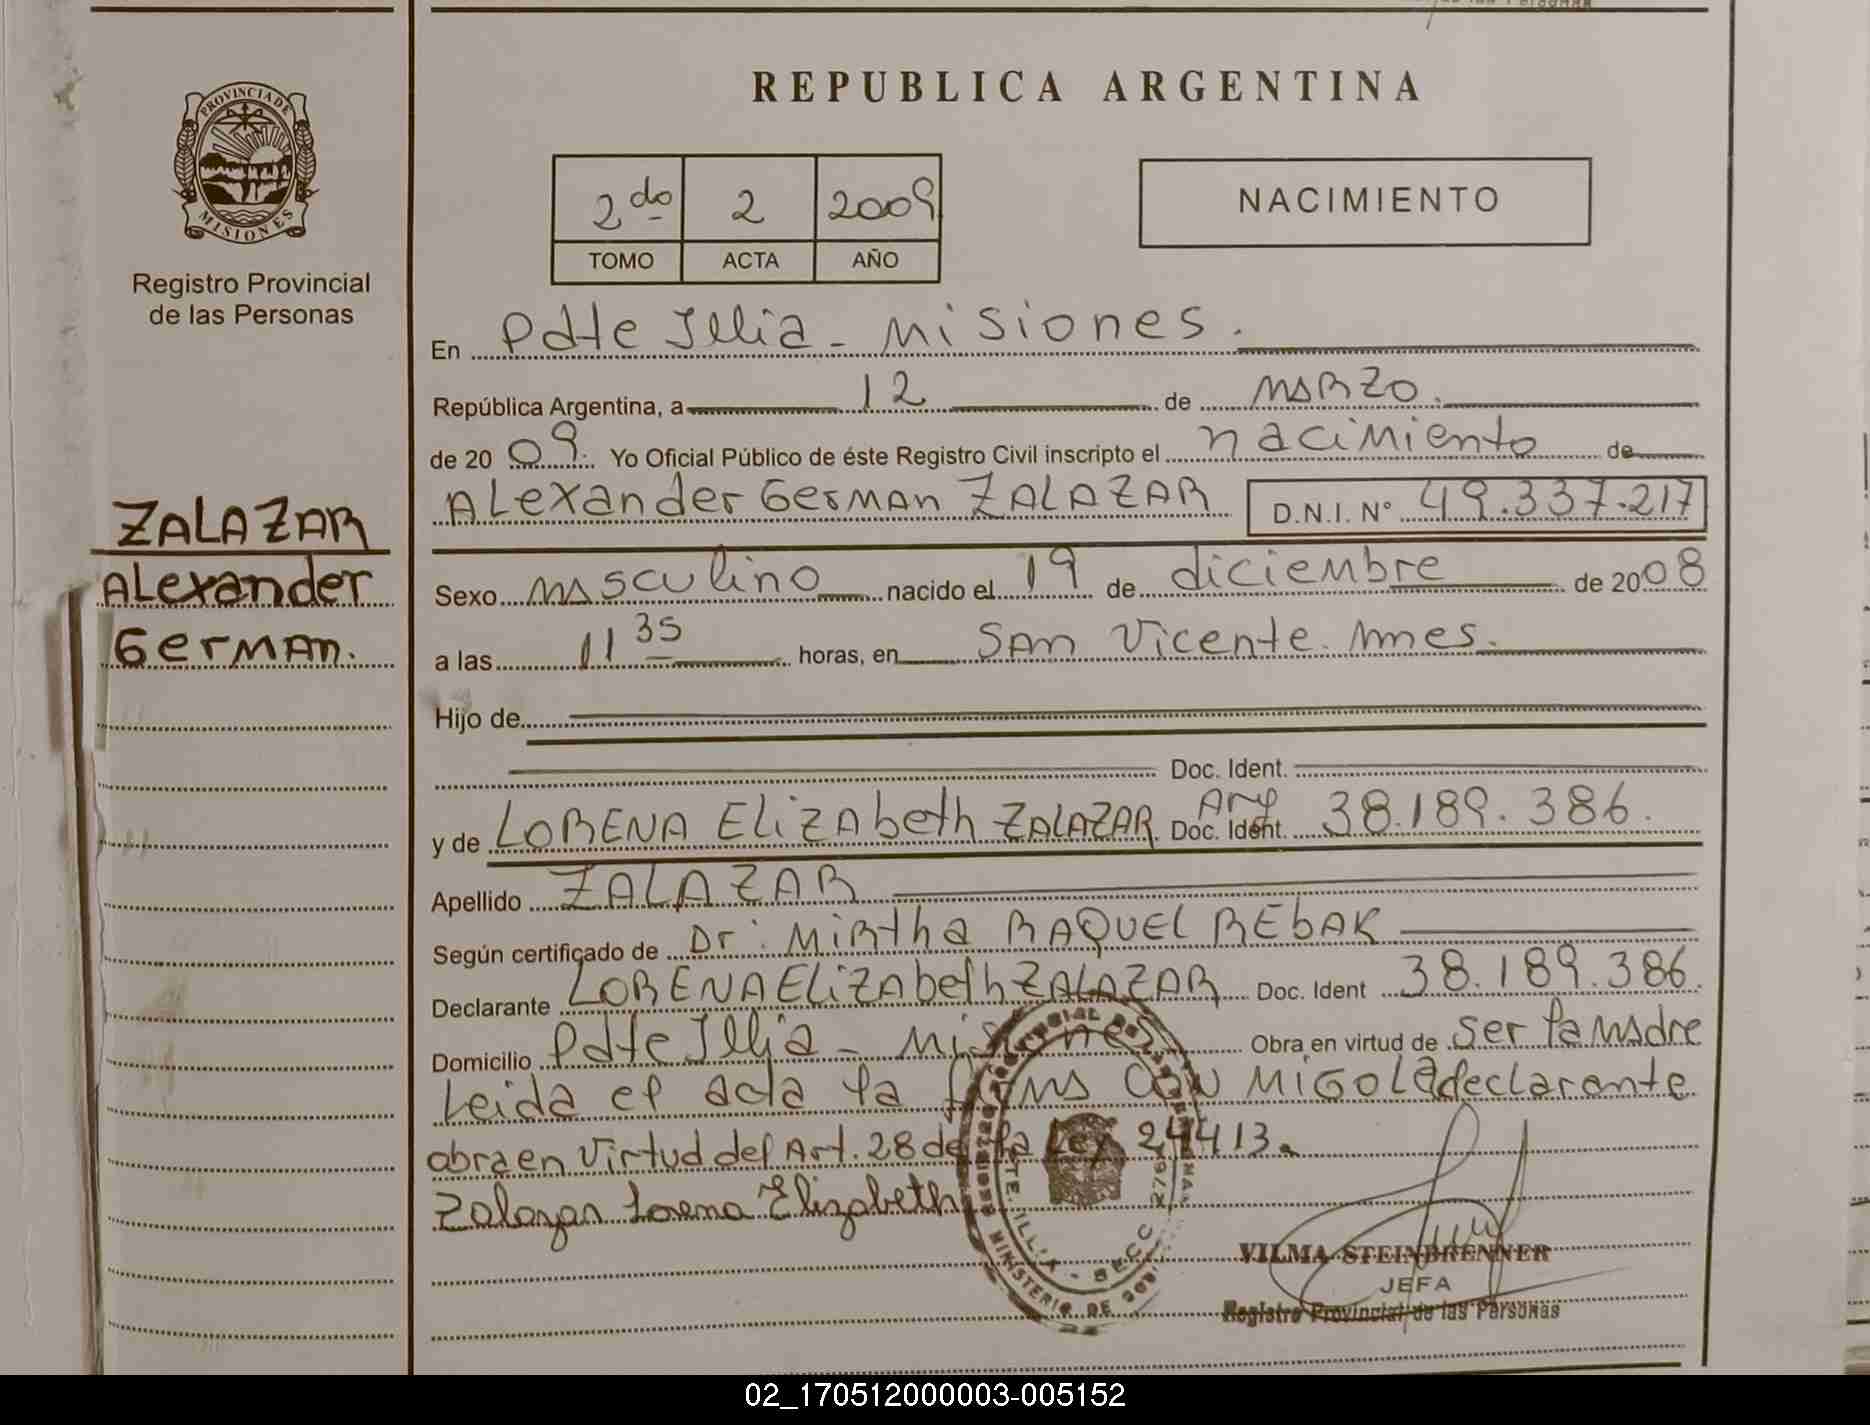 REPUBLICA ARGENTINA
PROVINCIA DE
MISIONES
Registro Provincial
de las Personas
2do 2 2009
TOMO ACTA AÑO
NACIMIENTO
En Pdte Illia - Misiones.
República Argentina, a 12 de MARZO.
de 20 09. Yo Oficial Público de éste Registro Civil inscripto el nacimiento de
ALexander GerMAN ZALAZAR D.N.I. N° 49.337.217
ZALAZAR
ALexander
GerMAN.
Sexo masculino nacido el 19 de diciembre de 2008
a las 11 35 horas, en SAN Vicente. Mnes.
Hijo de
Doc. Ident.
y de LORENA ELIZAbeth ZALAZAR Doc. Ident. Arg 38.189.386.
Apellido ZALAZAR
Según certificado de Dr: MIRtha RAQUEL REbAK
Declarante LORENA ELIZAbeth ZALAZAR Doc. Ident 38.189.386.
Domicilio Pdte Illia - Misiones Obra en virtud de ser la madre
Leida el acta la firma con MIGO la declarante
obra en virtud del Art. 28 de la Ley 24413.
Zalazar Lorena Elizabeth
VILMA STEINBRENNER
JEFA
Registro Provincial de las Personas
MINISTERIO DE
02_170512000003-005152